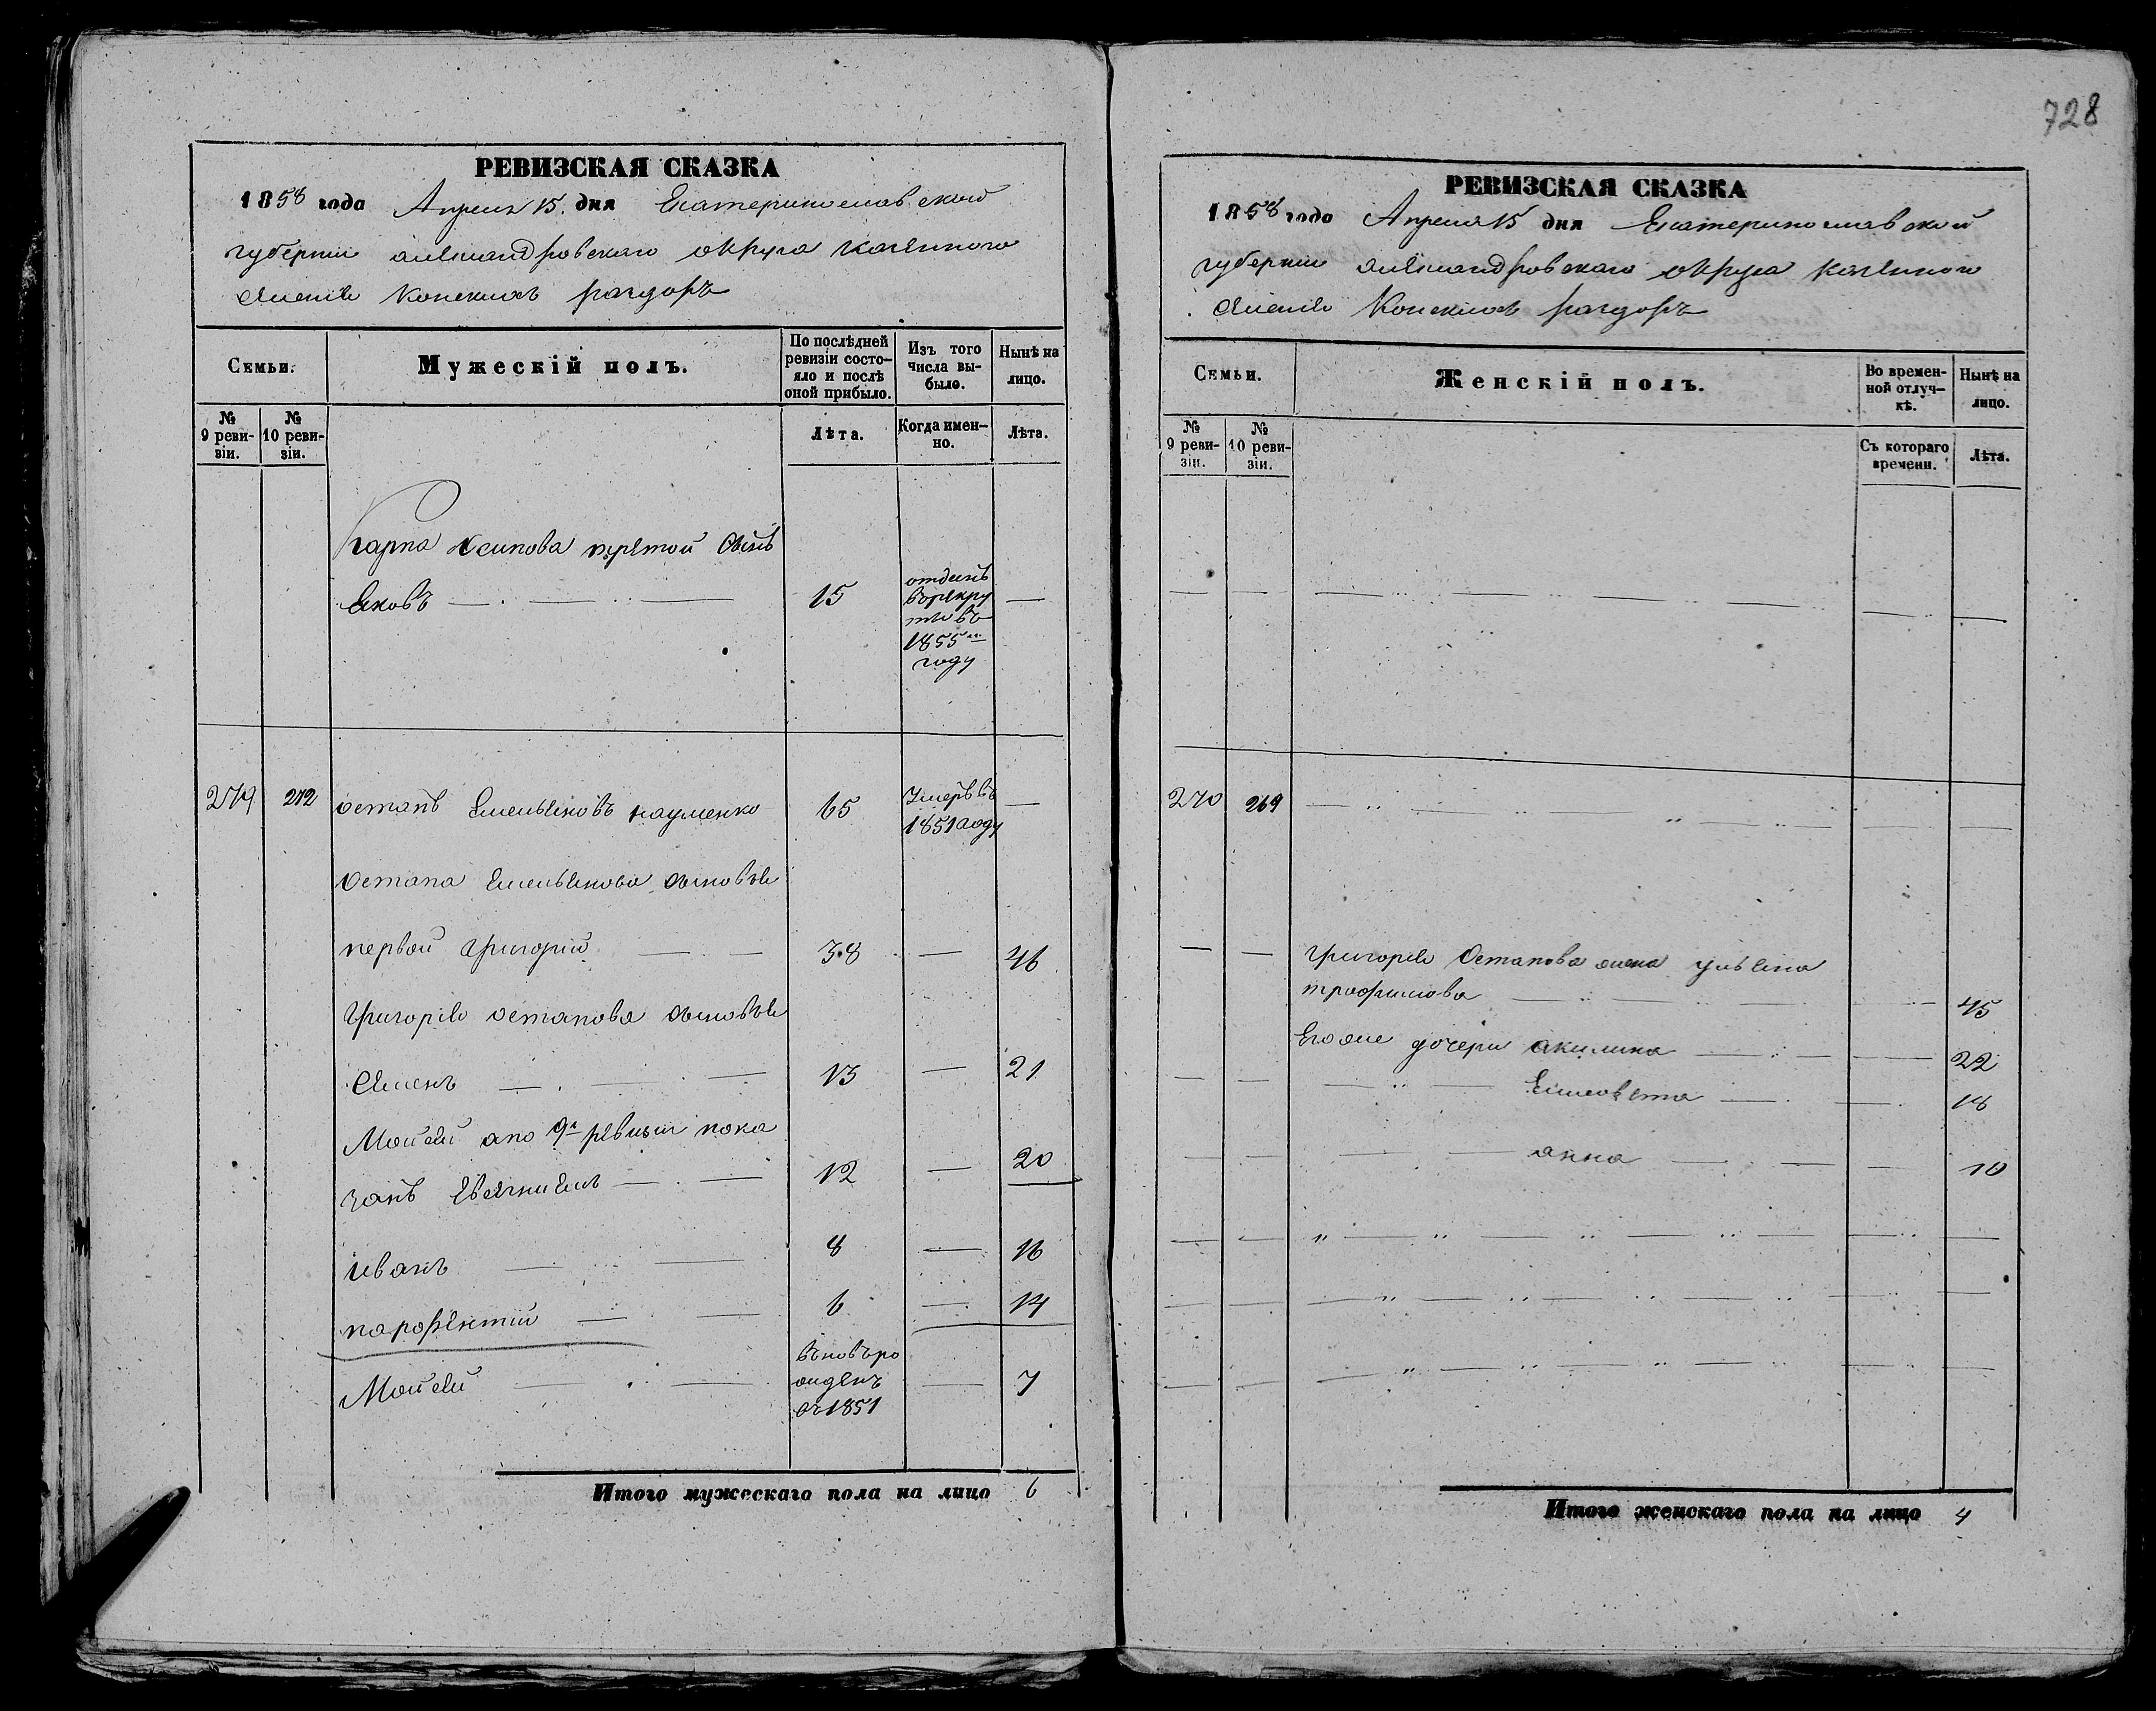 728
РЕВИЗСКАЯ СКАЗКА
1858 года Апреля 15. дня Екатеринославской
губернии александровскаго округа казенного
селения Конских раздоръ
Семьи.
Мужескій полъ.
По послѣдней ревизіи состо-
яло и послѣ оной прибыло.
Изъ того числа вы-
было.
Нынѣ на лицо.
№ 9 реви-
зіи.
№ 10 реви-
зіи.
Лѣта.
Когда имен-
но.
Лѣта.
Карпа Осипова третой сынъ
Яковъ — 15 отданъ
в рекру
ты въ
1855м
году —
279 272 остапъ Емельяновъ науменко 65 Умеръ въ —
1851 году
Остапа Емельянова сыновья
первой Григорий — 38 — 46
Григория остапова сыновья
Семенъ — 13 — 21
Моисей а по 9й ревизии пока
занъ Евсегнием — 12 — 20
иванъ — 8 — 16
парфентий — 6 — 14
Моисей — вновъ ро
жденъ
въ 1851 — 7
Итого мужескаго пола на лицо 6
РЕВИЗСКАЯ СКАЗКА
1858 года Апреля 15 дня Екатеринославской
губернии александровскаго округа казенного
селения Конских раздоръ
Семьи.
Женскій полъ.
Во времен-
ной отлуч-
кѣ.
Нынѣ на лицо.
№ 9 реви-
зіи.
№ 10 реви-
зіи.
Съ котораго времени.
Лѣта.
270 269 —
Григория Остапова жена ульяна
трофимова — 45
Его же дочери акилина — 22
Елисовета — 18
анна — 10
Итого женскаго пола на лицо 4